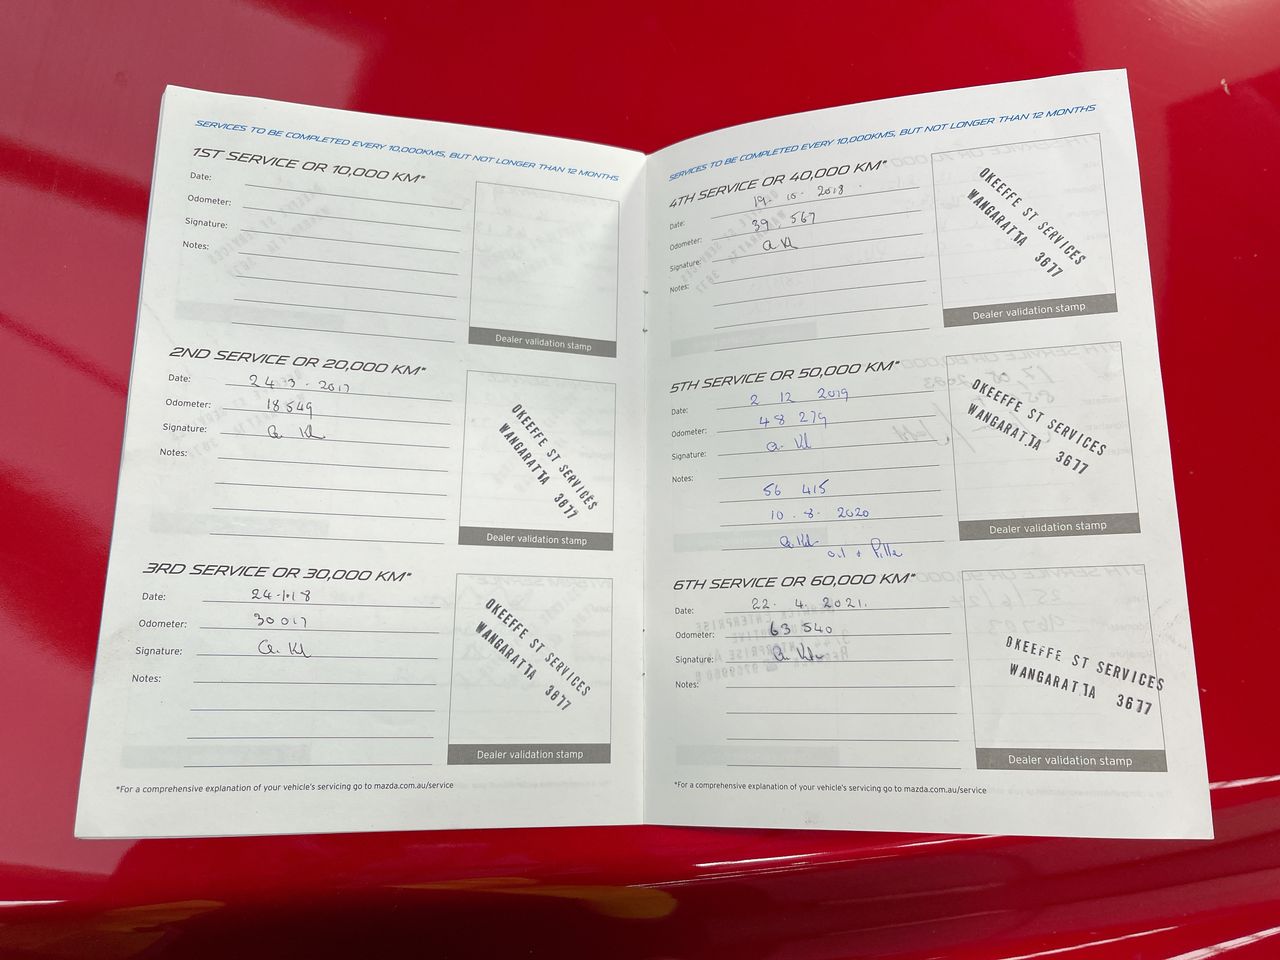 SERVICES TO BE COMPLETED EVERY 10,000KMS, BUT NOT LONGER THAN 12 MONTHS
1ST SERVICE OR 10,000 KM*
Date:
Odometer:
Signature:
Notes:
Dealer validation stamp
2ND SERVICE OR 20,000 KM*
Date: 24·3·2017
Odometer: 18549
Signature:
Notes:
OKEEFFE ST SERVICES
WANGARATTA 3677
Dealer validation stamp
3RD SERVICE OR 30,000 KM*
Date: 24·1·18
Odometer: 30017
Signature:
Notes:
OKEEFFE ST SERVICES
WANGARATTA 3677
Dealer validation stamp
*For a comprehensive explanation of your vehicle's servicing go to mazda.com.au/service
SERVICES TO BE COMPLETED EVERY 10,000KMS, BUT NOT LONGER THAN 12 MONTHS
4TH SERVICE OR 40,000 KM*
Date: 19· 10· 2018
Odometer: 39,567
Signature:
Notes:
OKEEFFE ST SERVICES
WANGARATTA 3677
Dealer validation stamp
5TH SERVICE OR 50,000 KM*
Date: 2 12 2019
Odometer: 48 279
Signature:
Notes:
56 415
10·8·2020
OKEEFFE ST SERVICES
WANGARATTA 3677
Dealer validation stamp
6TH SERVICE OR 60,000 KM*
Date: 22· 4· 2021.
Odometer: 63 540
Signature:
Notes:
OKEEFFE ST SERVICES
WANGARATTA 3677
Dealer validation stamp
*For a comprehensive explanation of your vehicle's servicing go to mazda.com.au/service